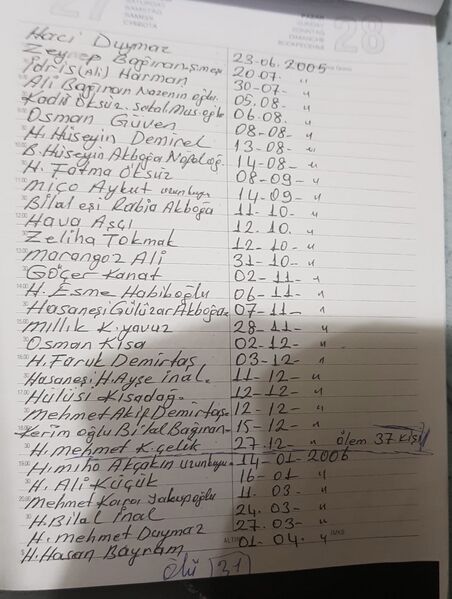 27
28
CUMARTESİ
SATURDAY
SAMSTAG
PAZAR
SUNDAY
SONNTAG
DIMANCHE
Haci Duymaz 23-06.2005
Zeynep Bağıran 20-07. "
İdris (Ali) Harman 30-07- "
Ali Bağıran Nazenin oğlu. 05.08- "
Kadir Öksüz. sakal Mas. oğlu 06.08. "
Osman Güven 08-08- "
H. Hüseyin Demirel 13-08- "
B. Hüseyin Akboğa 14-08- "
H. Fatma Öksüz 08-09- "
Miço Aykut uzunkuyu 14-09- "
Bilal eşi Rabia Akboğa 11-10- "
Hava Aşçı 12.10. "
Zeliha Tokmak 12-10- "
Marangoz Ali 31-10- "
Göçer Kanat 02-11- "
H. Esme Habiboğlu 06-11- "
Hasaneşi Gülüzar Akboğa 07-11- "
Millik K. yavuz 28-11- "
Osman Kısa 02-12- "
H. Faruk Demirtaş 03-12- "
Hasaneşi H. Ayşe inal. 11-12- "
Hülüsi Kısadağ. 12-12- "
Mehmet Akif Demirtaş 12-12- "
Kerim oğlu Bilal Bağıran 15-12- "
H. mehmet K. çelik 27.12- " ölem 37 kişi
H. miho Akçakın uzunkuyu 14-01-2006
H. Ali Küçük 16-01 "
Mehmet Karaı yakupoğlu 11.03- "
H. Bilal İnal 24.03- "
H. mehmet Duymaz 27.03- "
H. Hasan Bayram 01-04. "
Ölü (31)